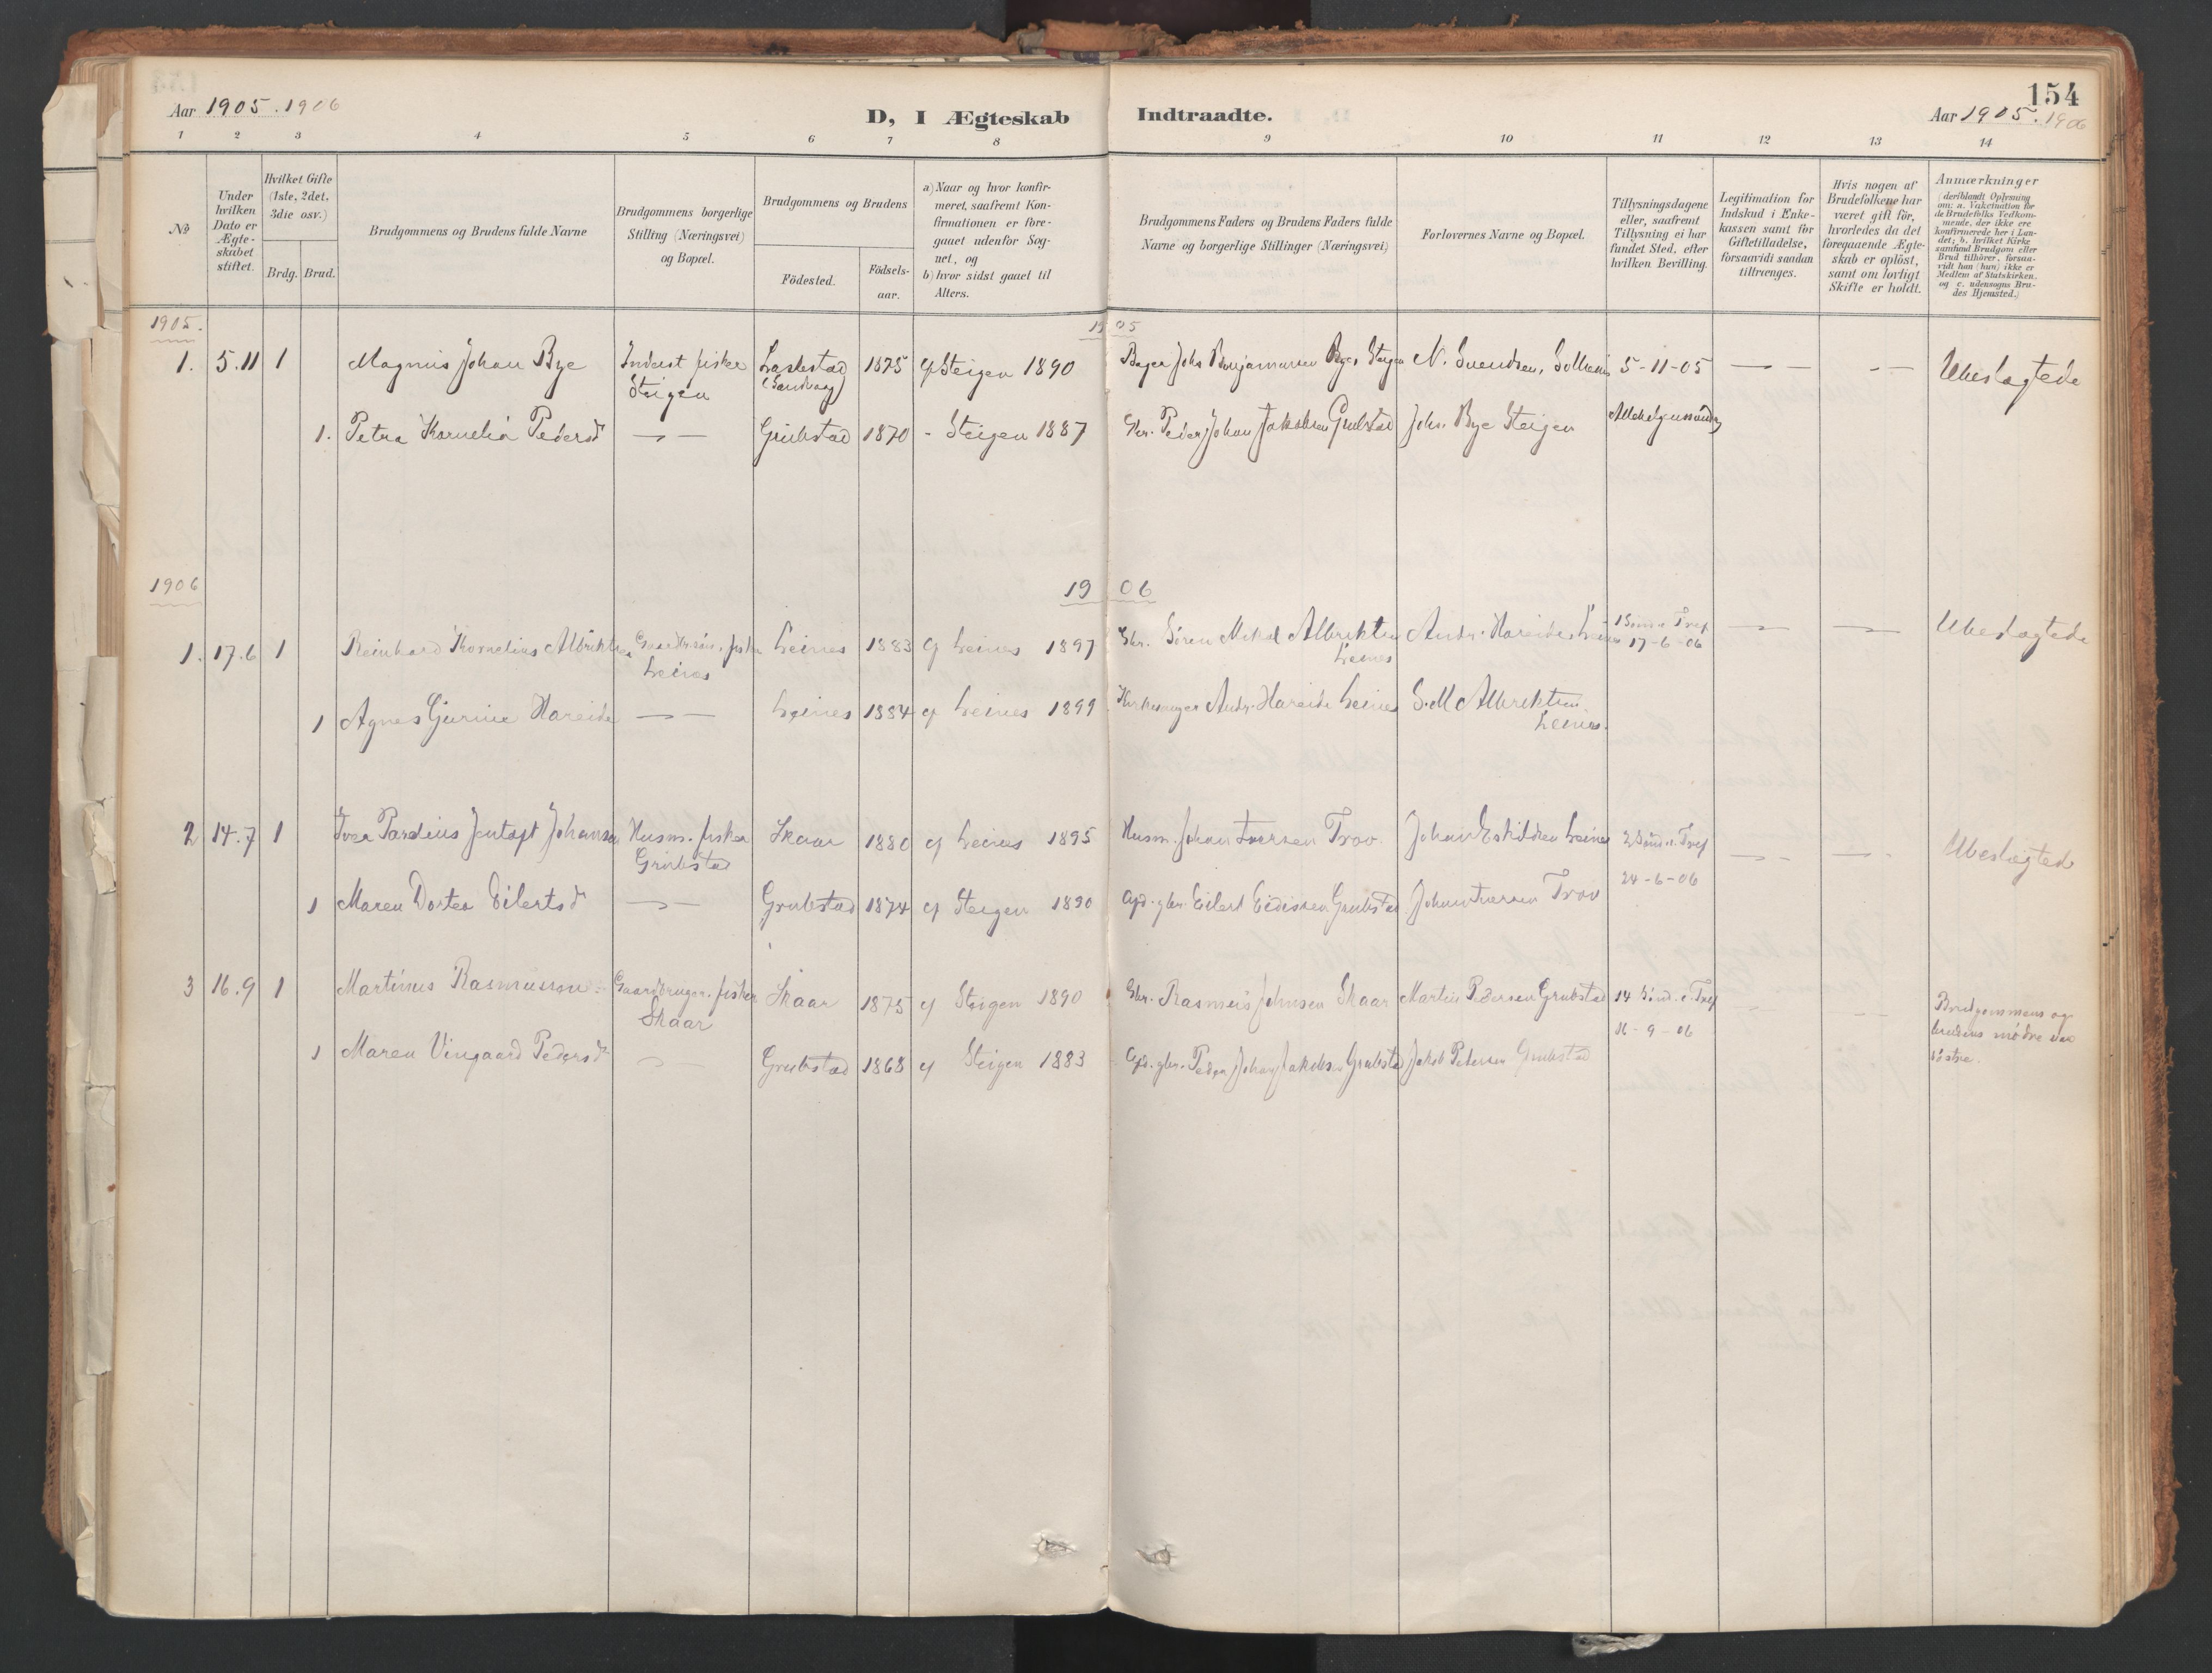 154
Aar 1905. 1906
D, I Ægteskab Indtraadte.
Aar 1905. 1906
1 2 3 4 5 6 7 8 9 10 11 12 13 14
№
Under hvilken Dato er Ægteskabet stiftet.
Hvilket Gifte (1ste, 2det, 3die osv.)
Brdg. Brud.
Brudgommens og Brudens fulde Navne
Brudgommens borgerlige Stilling (Næringsvei) og Bopæl.
Brudgommens og Brudens
Födested. Födselsaar.
a) Naar og hvor konfirmeret, saafremt Konfirmationen er foregaaet udenfor Sognet, og
b) hvor sidst gaaet til Alters.
Brudgommens Faders og Brudens Faders fulde Navne og borgerlige Stillinger (Næringsvei)
Forlovernes Navne og Bopæl.
Tillysningsdagene eller, saafremt Tillysning ei har fundet Sted, efter hvilken Bevilling.
Legitimation for Indskud i Enkekassen samt for Giftetilladelse, forsaavidt saadan tiltrænges.
Hvis nogen af Brudefolkene har været gift før, hvorledes da det foregaaende Ægteskab er oplöst, samt om lovligt Skifte er holdt.
Anmærkninger (deriblandt Oplysning om: a. Vakcination for de Brudefolks Vedkommende, der ikke ere konfirmerede her i Landet; b. hvilket Kirkesamfund Brudgom eller Brud tilhörer, forsaavidt han (hun) ikke er Medlem af Statskirken, og c. udensogns Brudes Hjemsted.)
1905. 1905
1. 5.11 1 Magnus Johan Bye Inderst fisker Steigen 1875 Steigen 1890 Johs Benjaminsen Bye, Steigen N. Svendsen, 5-11-05 — — - — Ubeslægtede
1. Petra Kornelia Pedersd — — Grubstad 1870 - Steigen 1887 Gbr. Peder Johan Jakobsen Grubstad Johs. Bye Steigen
1906 1906
1. 17.6 1 Reinhard Kornelius Albriktsen fisker Leines Leines 1883 og Leines 1897 Gbr. Sören Mikal Albriktsen Leines Andr. Hareide Leines 1 Sönd e. Tref 17-6-06 — — — — Ubeslægtede
1 Agnes Gurine Hareide — — Leines 1884 og Leines 1899 Kirkesanger Andr. Hareide Leines S. M Albriktsen Leines.
2 14.7 1 Iver Pareliusen Johansen Husm. fisker Grubstad Skaar 1880 og Leines 1895 Husm. Johan Iversen Trov. Johan Eskildsen Leines 2 Sönd e. Tref 24-6-06 — - — - Ubeslægtede
1 Maren Dortea Eilertsd — — Grubstad 1874 og Steigen 1890 Gbr. Eilert Grubstad Johan Iversen Trov
3 16.9 1 Martinus Rasmussen Gaardbruger. fisker Skaar Skaar 1875 og Steigen 1890 Gbr. Rasmus Johnsen Skaar Martin Pedersen Grubstad 14 Sönd. e. Tref 16-9-06 Brudgommens og brudens mödre var söstre.
1 Maren Vingaard Pedersd — Grubstad 1868 og Steigen 1883 Peder Johan Jakobsen Grubstad Jakob Pedersen Grubstad